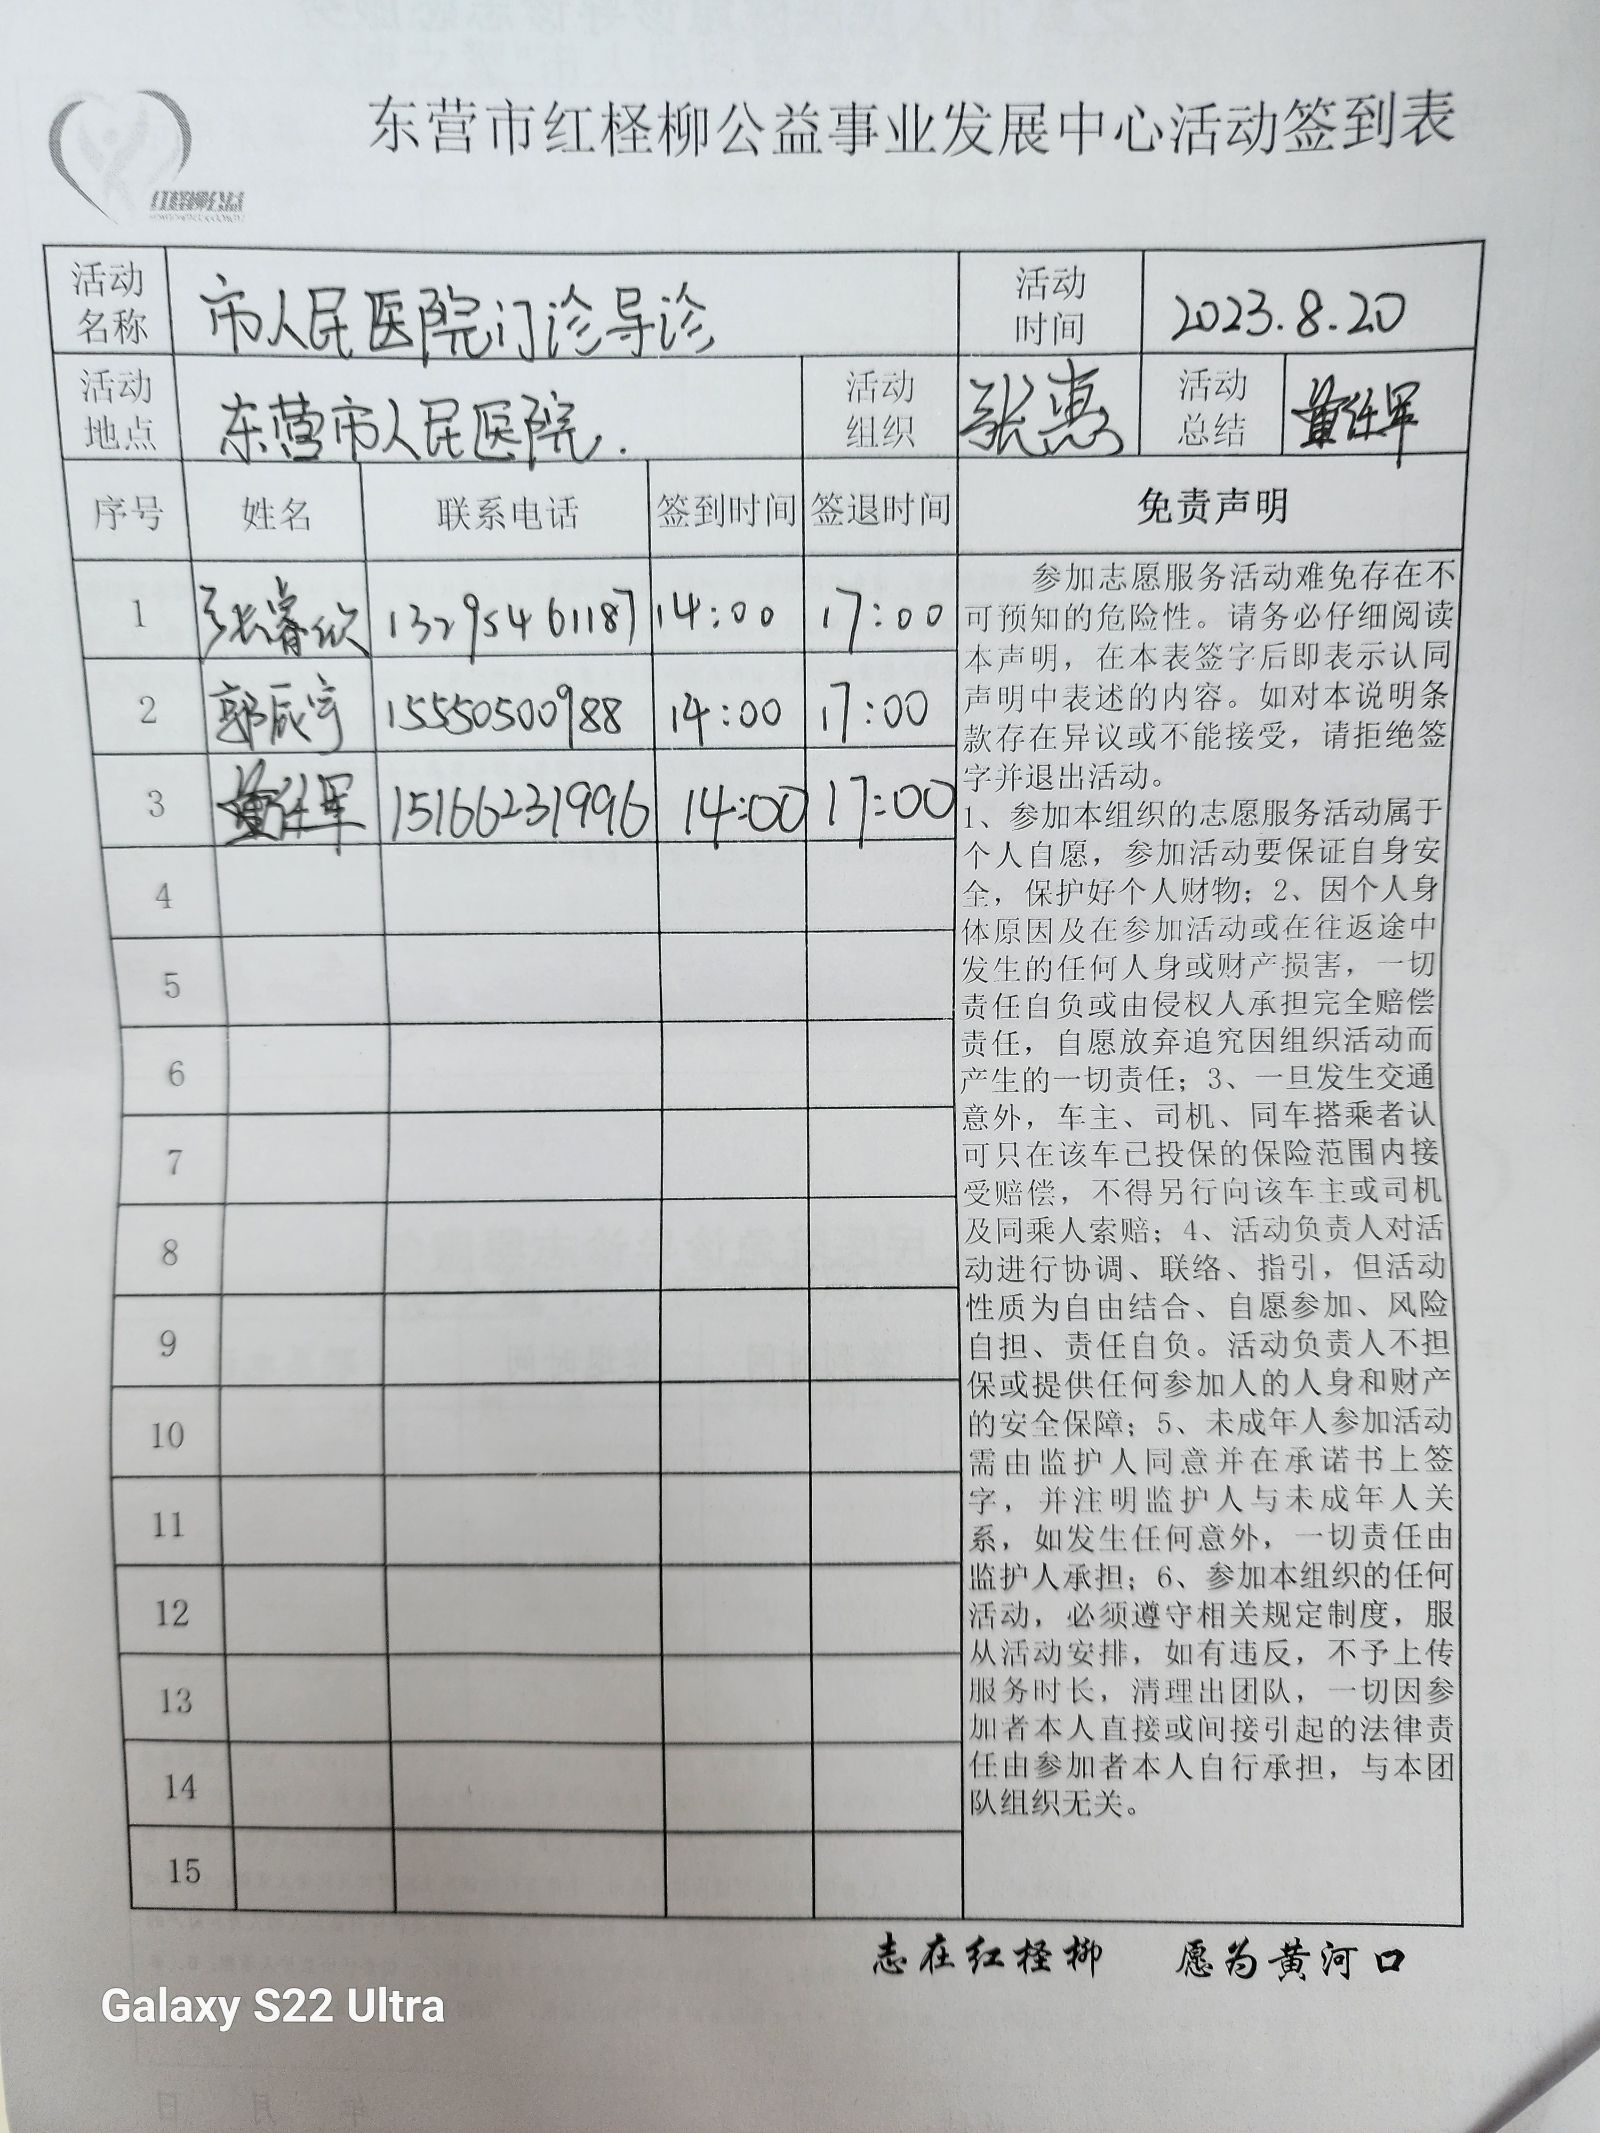 东营市红柽柳公益事业发展中心活动签到表
红柽柳公益
活动名称 市人民医院门诊导诊 活动时间 2023.8.20
活动地点 东营市人民医院. 活动组织 张惠 活动总结
序号 姓名 联系电话 签到时间 签退时间 免责声明
1 张睿欣 13295461187 14:00 17:00
2 郭辰宇 15550500988 14:00 17:00
3 15166231996 14:00 17:00
4
5
6
7
8
9
10
11
12
13
14
15
参加志愿服务活动难免存在不
可预知的危险性。请务必仔细阅读
本声明，在本表签字后即表示认同
声明中表述的内容。如对本说明条
款存在异议或不能接受，请拒绝签
字并退出活动。
1、参加本组织的志愿服务活动属于
个人自愿，参加活动要保证自身安
全，保护好个人财物；2、因个人身
体原因及在参加活动或在往返途中
发生的任何人身或财产损害，一切
责任自负或由侵权人承担完全赔偿
责任，自愿放弃追究因组织活动而
产生的一切责任；3、一旦发生交通
意外，车主、司机、同车搭乘者认
可只在该车已投保的保险范围内接
受赔偿，不得另行向该车主或司机
及同乘人索赔；4、活动负责人对活
动进行协调、联络、指引，但活动
性质为自由结合、自愿参加、风险
自担、责任自负。活动负责人不担
保或提供任何参加人的人身和财产
的安全保障；5、未成年人参加活动
需由监护人同意并在承诺书上签
字，并注明监护人与未成年人关
系，如发生任何意外，一切责任由
监护人承担；6、参加本组织的任何
活动，必须遵守相关规定制度，服
从活动安排，如有违反，不予上传
服务时长，清理出团队，一切因参
加者本人直接或间接引起的法律责
任由参加者本人自行承担，与本团
队组织无关。
志在红柽柳 愿为黄河口
Galaxy S22 Ultra